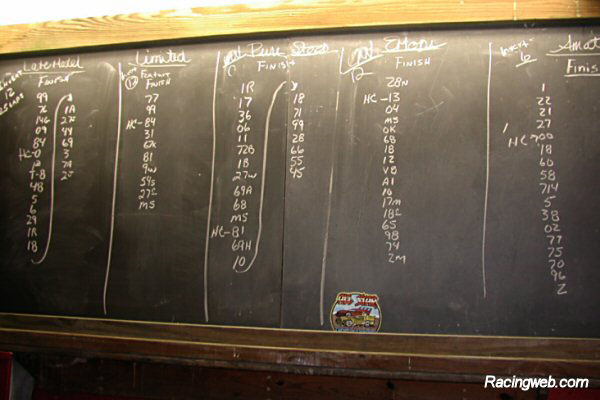 Late Model
FINISH
99
76
146
09
84
HC-0
F-8
48
5
6
29
1R
18
1A
44
69
3
Limited
Feature
FINISH
77
99
HC-84
31
67
81
9W
54s
MS
Pure Stock
FINISH
1R
17
36
06
11
72B
18
27W
69A
68
MS
HC-81
69H
10
18
71
99
28
66
55
45
FINISH
28N
HC-13
04
MS
OK
68
18
12
VB
A1
16
17m
65
98
74
2M
6
Finis
1
22
21
27
HC-00
18
60
58
714
5
38
02
77
75
70
96
2
Racingweb.com